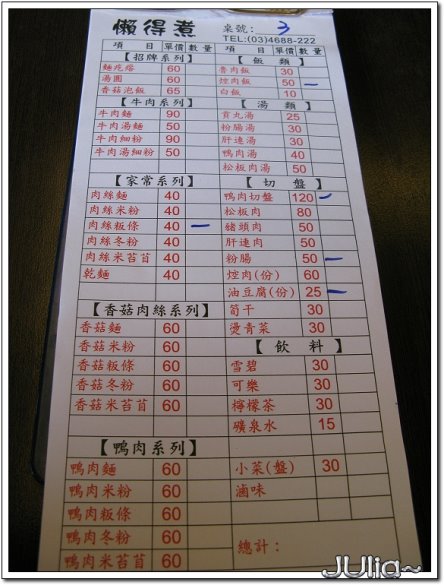 懶得煮 桌號： 3
TEL:(03)4688-222
項 目 單價 數量 項 目 單價 數量
【招牌系列】
麵疙瘩 60
湯圓 60
香菇泡飯 65
【牛肉系列】
牛肉麵 90
牛肉湯麵 50
牛肉細粉 90
牛肉湯細粉 50
【家常系列】
肉絲麵 40
肉絲米粉 40
肉絲粄條 40
肉絲冬粉 40
肉絲米苔苜 40
乾麵 40
【香菇肉絲系列】
香菇麵 60
香菇米粉 60
香菇粄條 60
香菇冬粉 60
香菇米苔苜 60
【鴨肉系列】
鴨肉麵 60
鴨肉米粉 60
鴨肉粄條 60
鴨肉冬粉 60
鴨肉米苔苜 60
【飯 類】
魯肉飯 30
焢肉飯 50
白飯 10
【湯 類】
貢丸湯 25
粉腸湯 30
肝連湯 30
鴨肉湯 40
松板肉湯 50
【切 盤】
鴨肉切盤 120
松板肉 80
豬頭肉 50
肝連肉 50
粉腸 50
焢肉(份) 60
油豆腐(份) 25
筍干 30
燙青菜 30
【飲 料】
雪碧 30
可樂 30
檸檬茶 30
礦泉水 15
小菜(盤) 30
滷味
總計：
JUlia~